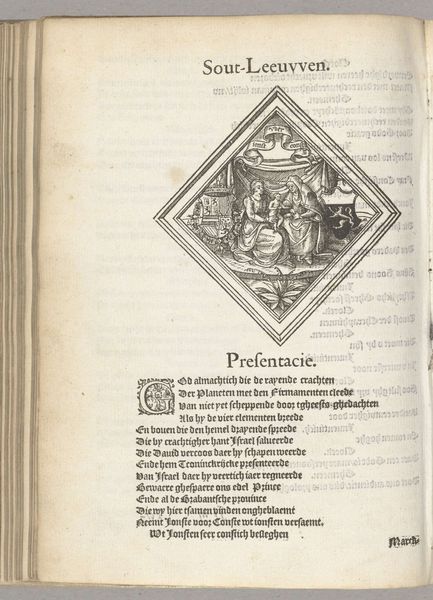 Sout-Leeuvven.
Presentacie.
GOd almachtich die de rayende crachten
Der Planeten met den Firmamenten cleede
Van niet yet scheppende door tgheests ghedachten
Als hy de vier elementen breede
En bouen die den hemel drayende spreede
Die by crachtigher hant Israel salueerde
Die Dauid vercoos daer hy schapen weerde
Ende hem Tconinckrijcke presenteerde
Van Israel daer hy veertich iaer regneerde
Gewaere ghespaere ons edel Prince
Ende al de Brabantsche prouince
Die wy hier tsamen vinden ongheblaemt
Neemt Jonste voor Conste wt ionsten versaemt.
Wt Jonsten seer constich beseghen